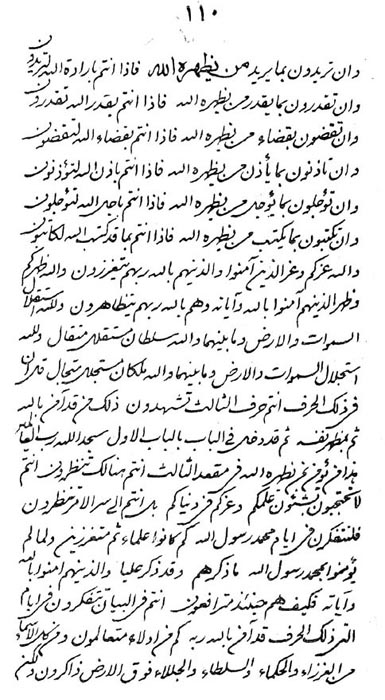 ١١٠
وان تريدون بما يريد من يظهره الله فاذا انتم بارادة الله لتريدون
وان تقدرون بما يقدر من يظهره الله فاذا انتم بقدر الله تقدرون
وان تقضون بقضاء من يظهره الله فاذا انتم بقضاء الله لتقضون
وان تأذنون بما يأذن من يظهره الله فاذا انتم باذن الله لتؤذنون
وان تؤجلون بما يؤجل من يظهره الله فاذا انتم باجل الله لتؤجلون
وان تكتبون بما يكتب من يظهره الله فاذا انتم بما قد كتب الله لكاتبون
والله عزكم وعز الذين آمنوا والذينهم بالله ربهم متعززون والله ظهركم
وظهر الذينهم آمنوا بالله وآياته وهم بالله ربهم يتظاهرون ولله استقلال
السموات والارض وما بينهما والله سلطان مستقل متقال ولله
استجلال السموات والارض وما بينهما والله ملكان مستجل متجال قل ان
في ذلك الحرف انتم حرف الثالث تشهدون ذلك من قد آمن بالله
ثم بمظهر نفسه ثم قد دخل في الباب بالباب الاول سجد لله رب العالمين
هذا من يؤمن بمن يظهره الله في مقعد الثالث انتم هنالك تنظرون انتم
لا تحتجبون بشئون علمكم وعزكم في دنياكم بل انتم الى سر الامر تنظرون
فلتتفكرن في ايام محمد رسول الله كم كانوا علماء ثم متعززين ولما لم
يؤمنوا بمحمد رسول الله ما ذكرهم وقد ذكر عليا والذينهم آمنوا بالله
وآياته فكيف هم حينئذ مترافعون انتم في البيان تتفكرون في ايام
التي ذلك الحرف قد آمن بالله ربه كم من اولاء متعالمون ومن كل الاسماء
من العززاء والحكماء والسلطاء والجللاء فوق الارض ذاكرون ولكن